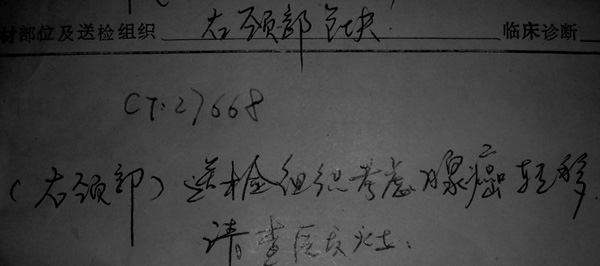 材部位及送检组织 右颈部包块 临床诊断
CT:27668
(右颈部)送检组织考虑腺癌转移
请查原发灶.